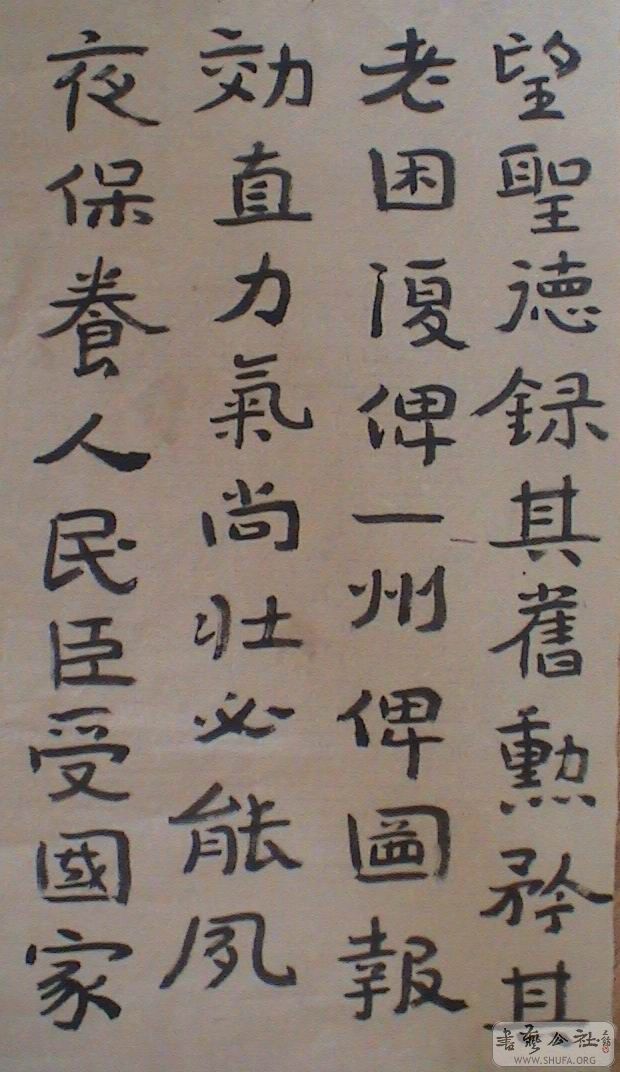 望聖德録其舊勳矜其
老困復俾一州俾圖報
効直力氣尚壯必能夙
夜保養人民臣受國家
書藝公社
WWW.SHUFA.ORG